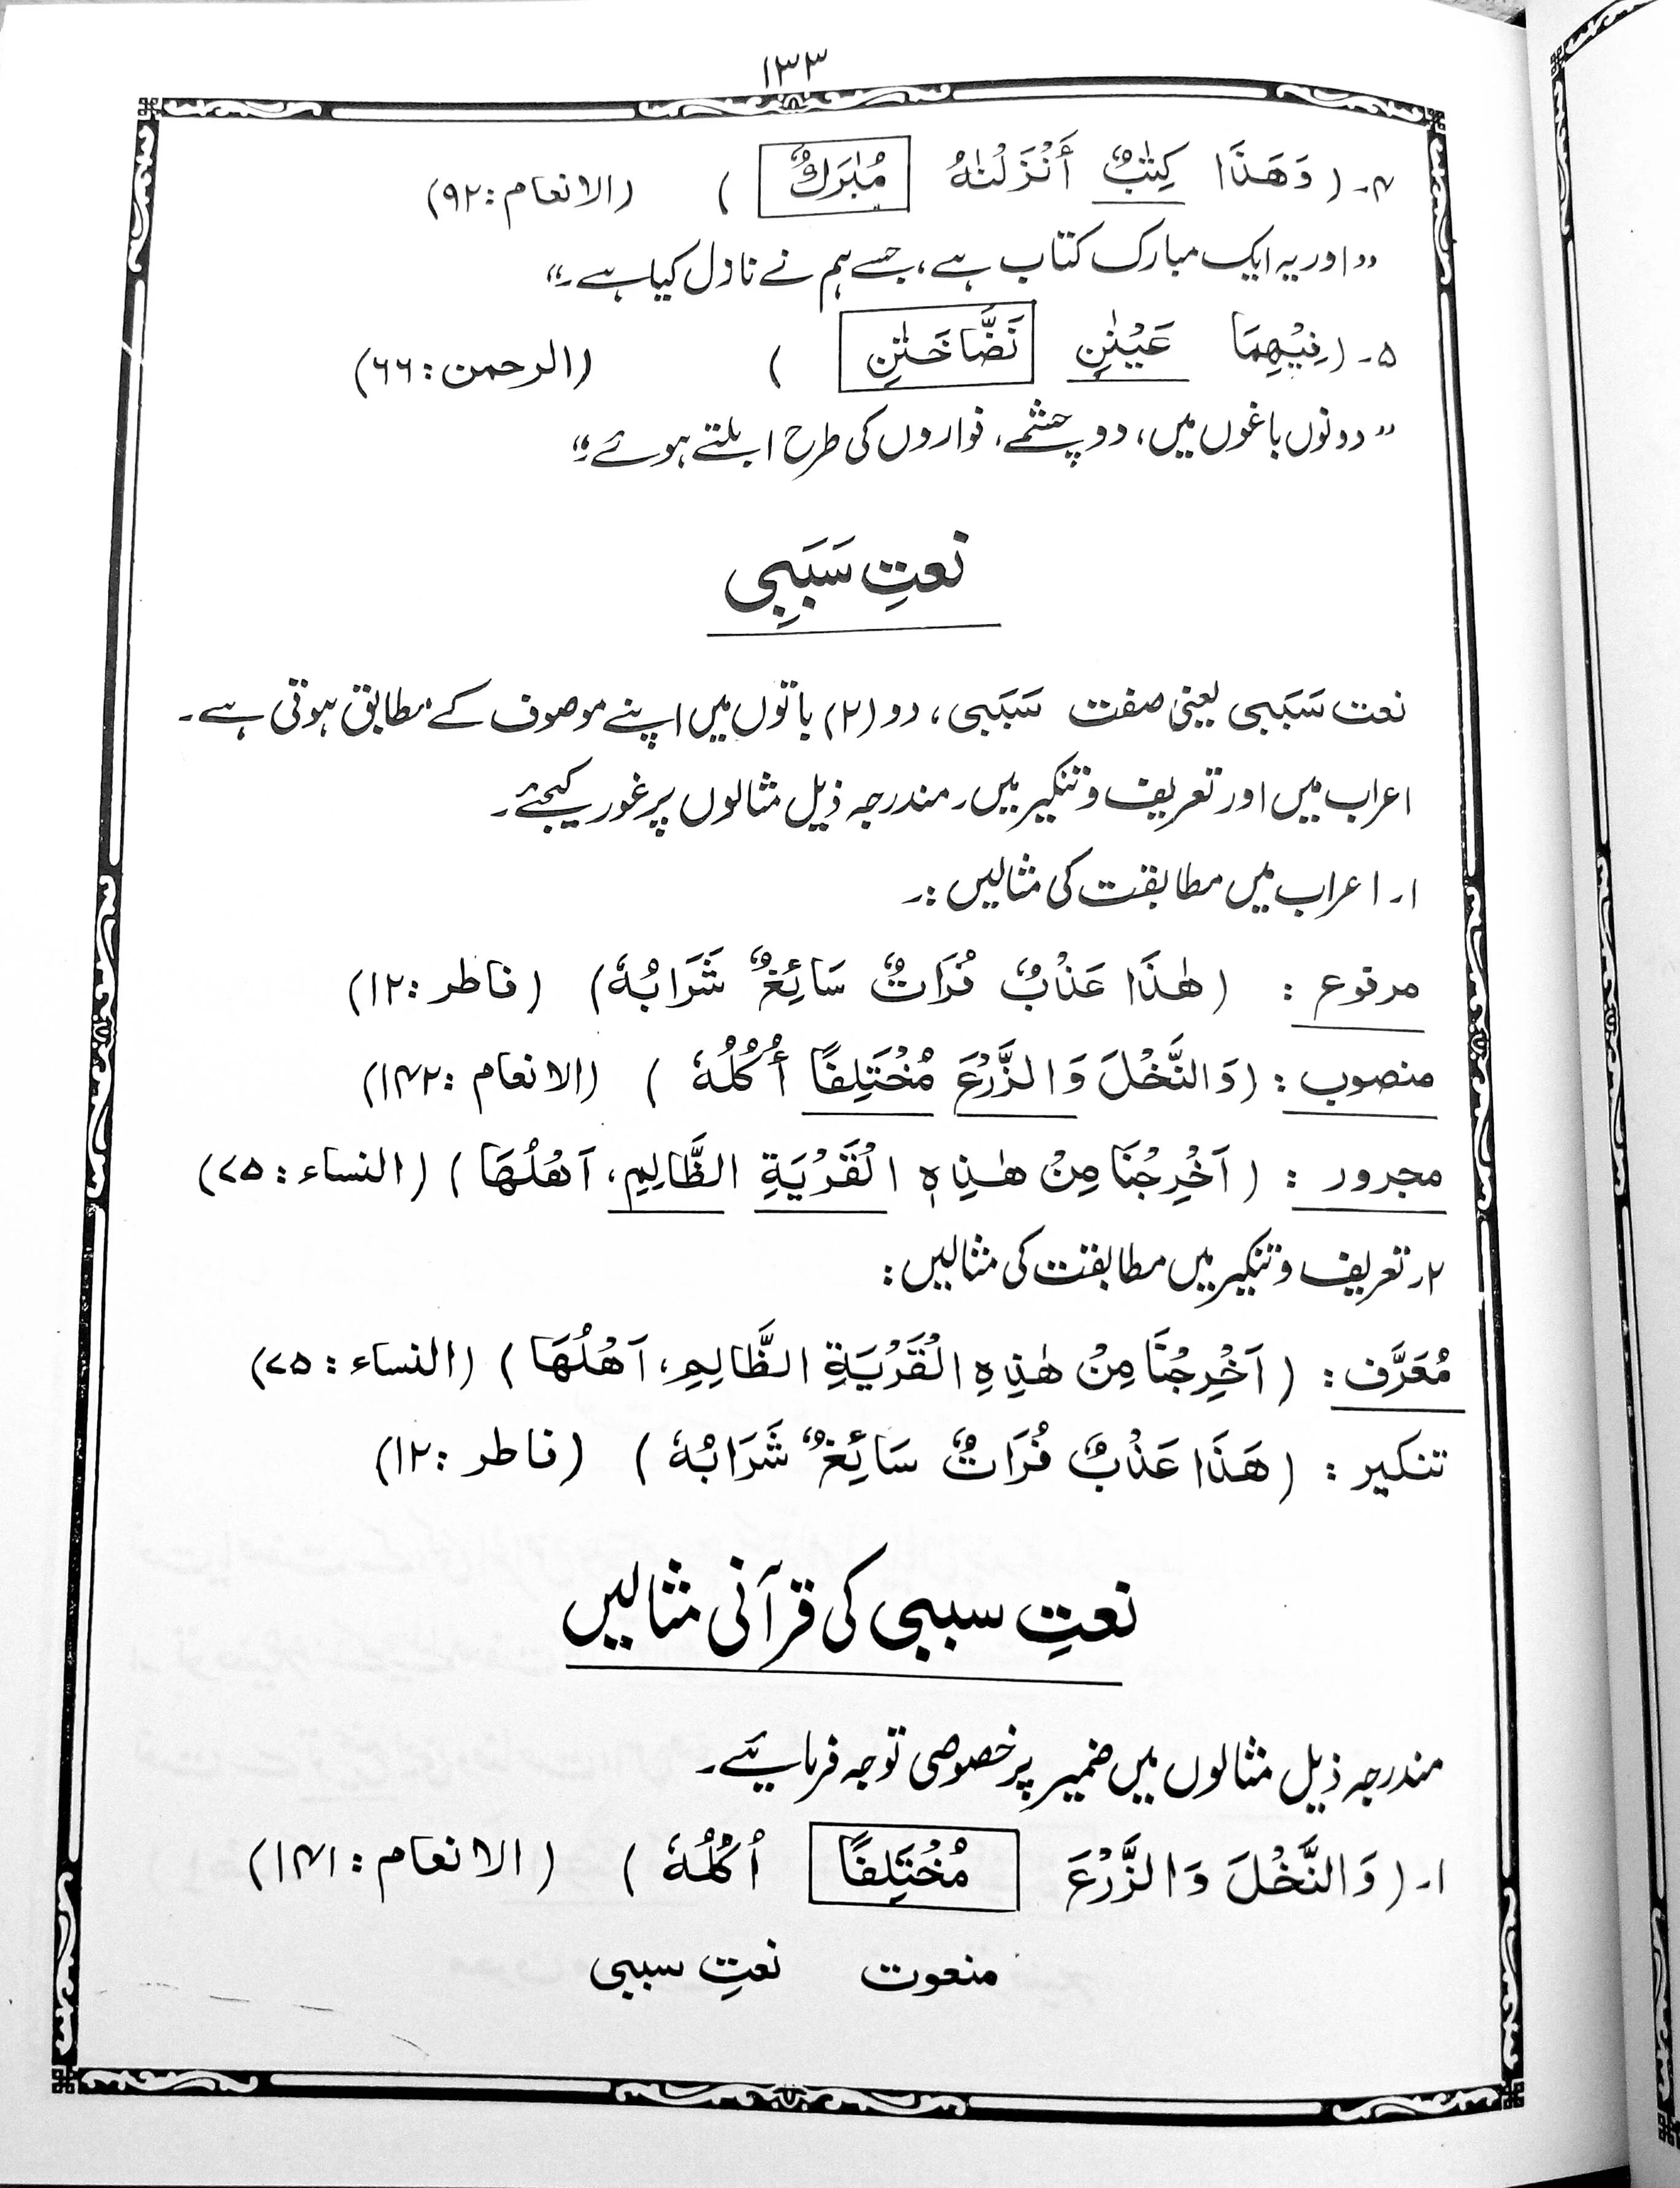 ۱۳۳
۴۔ (وَهَذَا كِتٰبٌ أَنْزَلْنٰهُ مُبٰرَكٌ) (الانعام: ۹۲)
”اور یہ ایک مبارک کتاب ہے، جسے ہم نے نازل کیا ہے۔“
۵۔ (فِيْهِمَا عَيْنٰنِ نَضَّاخَتٰنِ) (الرحمن: ۶۶)
”دونوں باغوں میں، دو چشمے، فواروں کی طرح ابلتے ہوئے۔“
نعتِ سَبَبِی
نعت سَبَبِی یعنی صفت سَبَبِی، دو (۲) باتوں میں اپنے موصوف کے مطابق ہوتی ہے۔
اعراب میں اور تعریف و تنکیر میں۔ مندرجہ ذیل مثالوں پر غور کیجئے۔
۱۔ اعراب میں مطابقت کی مثالیں:۔
مرفوع: (هٰذَا عَذْبٌ فُرَاتٌ سَائِغٌ شَرَابُهٗ) (فاطر: ۱۲)
منصوب: (وَالنَّخْلَ وَالزَّرْعَ مُخْتَلِفًا أُكُلُهٗ) (الانعام: ۱۴۲)
مجرور: (اَخْرِجْنَا مِنْ هٰذِهٖ الْقَرْيَةِ الظَّالِمِ، اَهْلُهَا) (النساء: ۷۵)
۲۔ تعریف و تنکیر میں مطابقت کی مثالیں:
مُعَرَّف: (اَخْرِجْنَا مِنْ هٰذِهِ الْقَرْيَةِ الظَّالِمِ، اَهْلُهَا) (النساء: ۷۵)
تنکیر: (هَذَا عَذْبٌ فُرَاتٌ سَائِغٌ شَرَابُهٗ) (فاطر: ۱۲)
نعتِ سببی کی قرآنی مثالیں
مندرجہ ذیل مثالوں میں ضمیر پر خصوصی توجہ فرمائیے۔
۱۔ (وَالنَّخْلَ وَالزَّرْعَ مُخْتَلِفًا اُكُلُهٗ) (الانعام: ۱۴۱)
منعوت نعتِ سببی